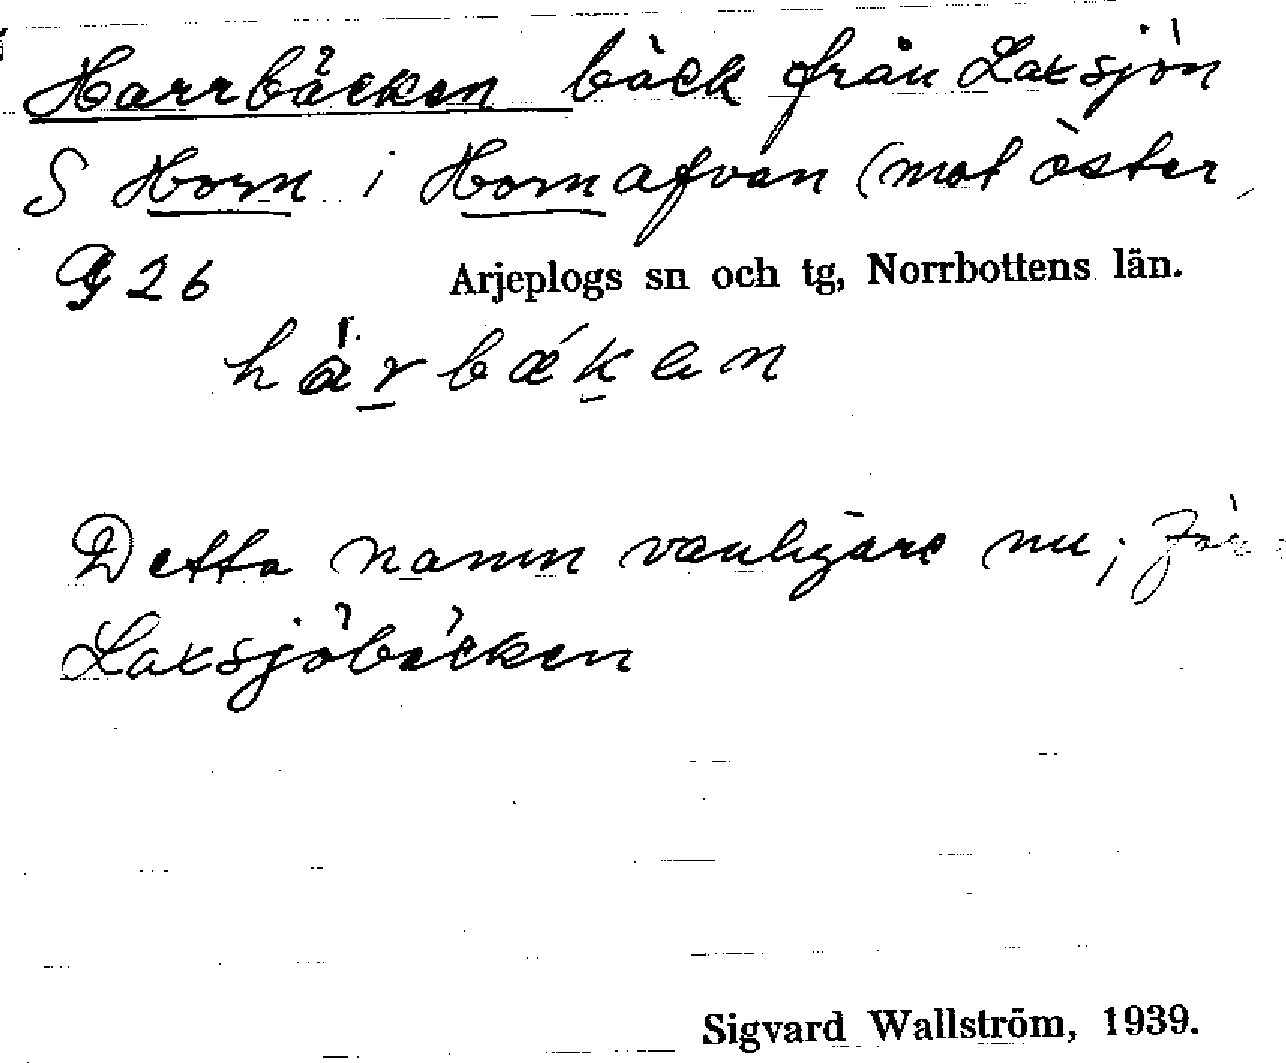 Harrbäcken bäck från Laxsjön
S Horn i Hornafvan (mot öster,
G 26 Arjeplogs sn och tg, Norrbottens län.
hárbǽkan
Detta namn vanligare nu; för
Laxsjöbäcken
Sigvard Wallström, 1939.